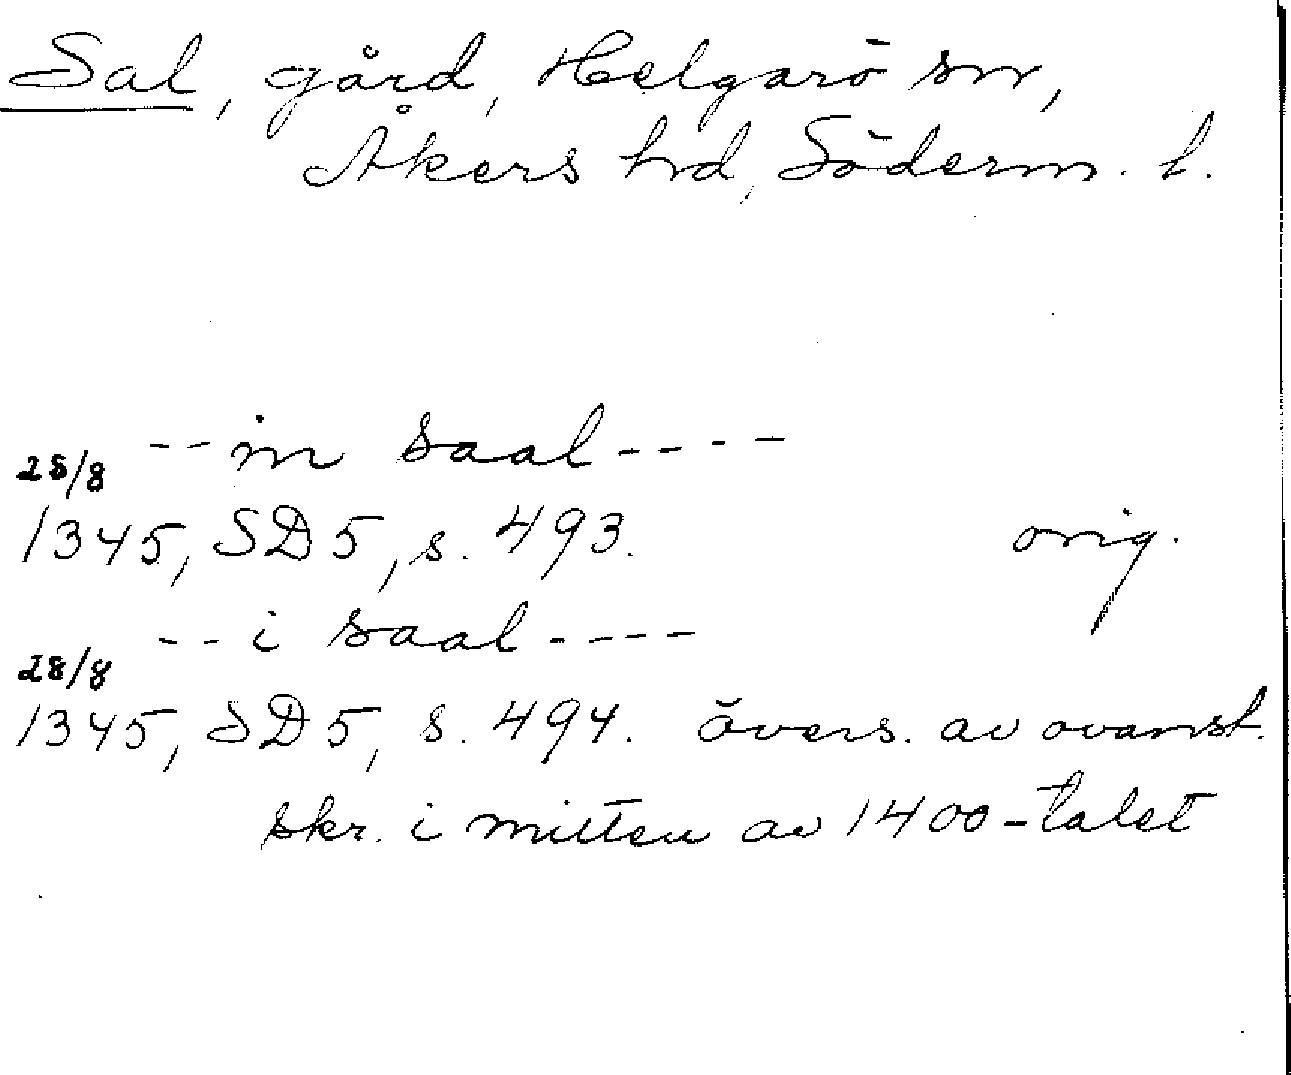 Sal, gård, Helgarö sn,
Åkers hd, Söderm. l.
--in saal----
28/8
1345, SD 5, s. 493. orig.
--i saal----
28/8
1345, SD 5, s. 494. övers. av ovanst.
skr. i mitten av 1400-talet